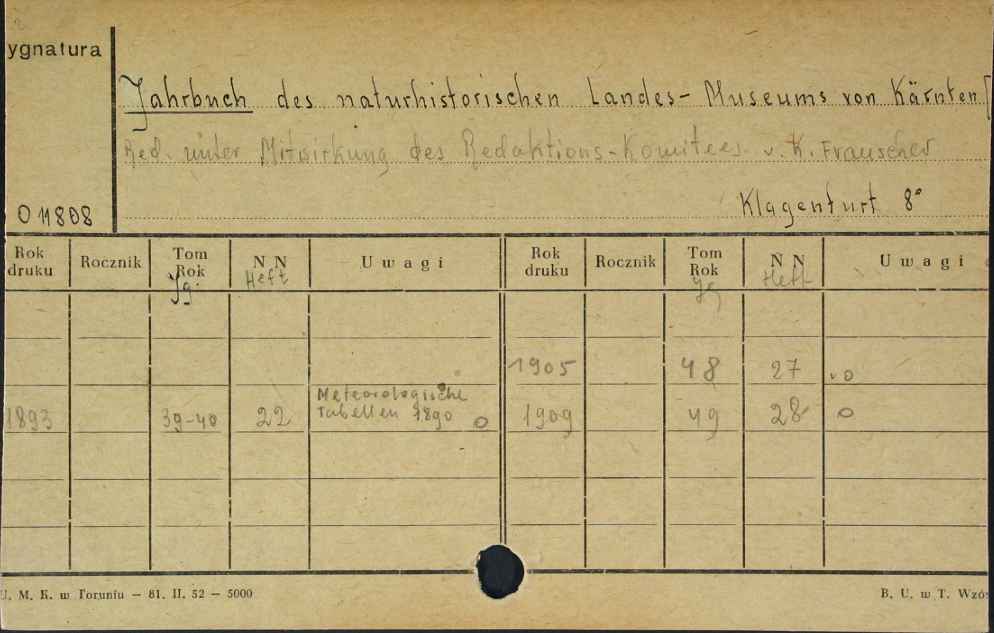 ygnatura
Jahrbuch des naturhistorischen Landes-Museums von Kärnten[
Red. unter Mitwirkung des Redaktions-Komitees v. K. Frauscher
O 11808
Klagenfurt 8°
Rok druku Rocznik Tom Rok Jg. N N Heft Uwagi Rok druku Rocznik Tom Rok Jg N N Heft Uwagi
1905 48 27 o
1893 39-40 22 Meteorologische Tabellen 1890 o 1909 49 28 o
U. M. K. w Toruniu — 81. II. 52 — 5000
B. U. w T. Wzó